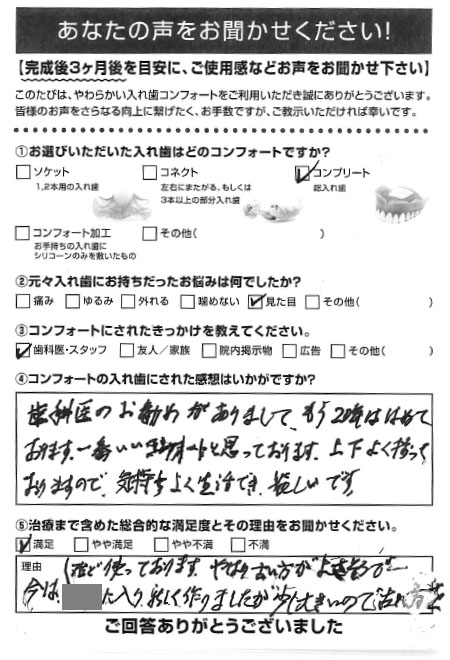 あなたの声をお聞かせください!
【完成後3ヶ月後を目安に、ご使用感などお声をお聞かせ下さい】
このたびは、やわらかい入れ歯コンフォートをご利用いただき誠にありがとうございます。
皆様のお声をさらなる向上に繋げたく、お手数ですが、ご教示いただければ幸いです。
①お選びいただいた入れ歯はどのコンフォートですか?
ソケット
1,2本用の入れ歯
コネクト
左右にまたがる、もしくは
3本以上の部分入れ歯
コンプリート
総入れ歯
コンフォート加工
お手持ちの入れ歯に
シリコーンのみを敷いたもの
その他( )
②元々入れ歯にお持ちだったお悩みは何でしたか?
痛み ゆるみ 外れる 噛めない 見た目 その他( )
③コンフォートにされたきっかけを教えてください。
歯科医・スタッフ 友人/家族 院内掲示物 広告 その他( )
④コンフォートの入れ歯にされた感想はいかがですか?
歯科医のお勧めがありまして、もう20年ははめて
おります。一番いい と思っております。上下よく持って
おりますので、気持ちよく生活でき、嬉しいです。
⑤治療まで含めた総合的な満足度とその理由をお聞かせください。
満足 やや満足 やや不満 不満
理由
ほど使っております。やはり古い方が
今は に入り、新しく作りましたが少し大きいので
ご回答ありがとうございました